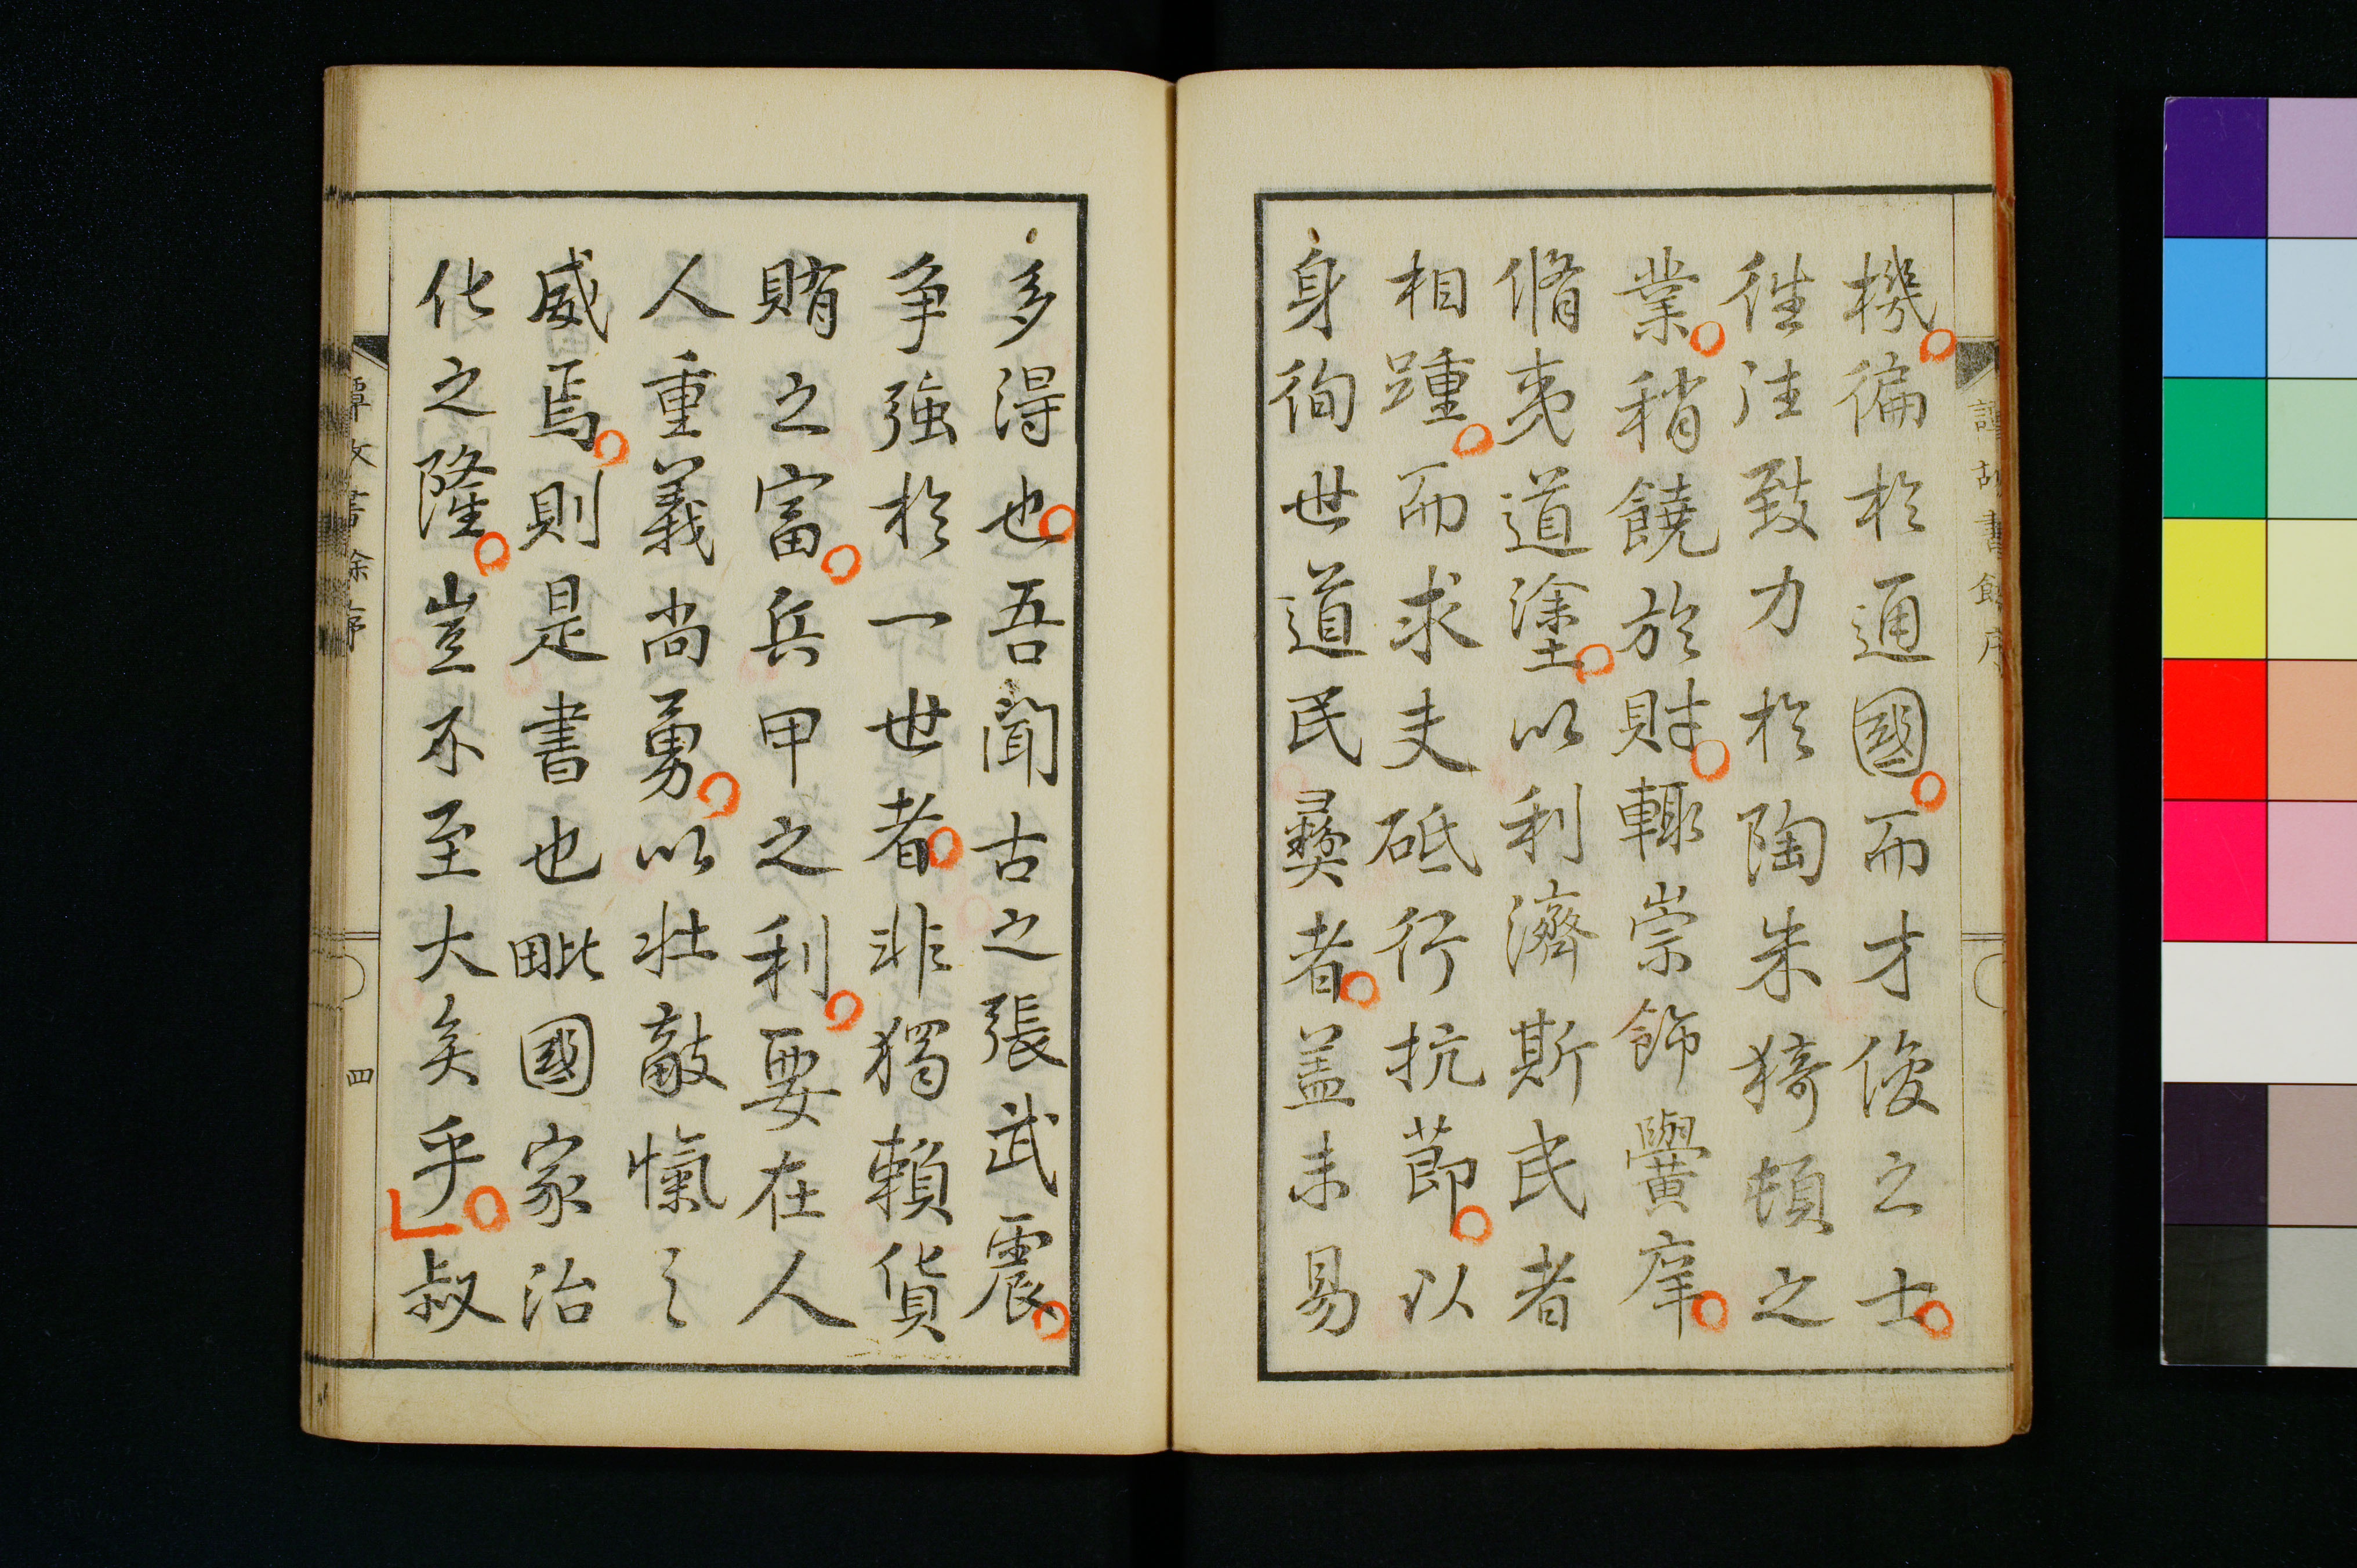 機徧於通國而才俊之士
往注致力於陶朱猗頓之
業稍饒於財輙崇飾黌庠
脩夷道塗以利濟斯民者
相踵而求夫砥行抗節以
身徇世道民彝者盖未易
多淂也吾聞古之張武震
争強於一世者非獨頼貨
賄之富兵甲之利要在人
人重義尚勇以壮敵愾之
威焉則是書也毗國家治
化之隆豈不至大矣乎叔
書餘序
四